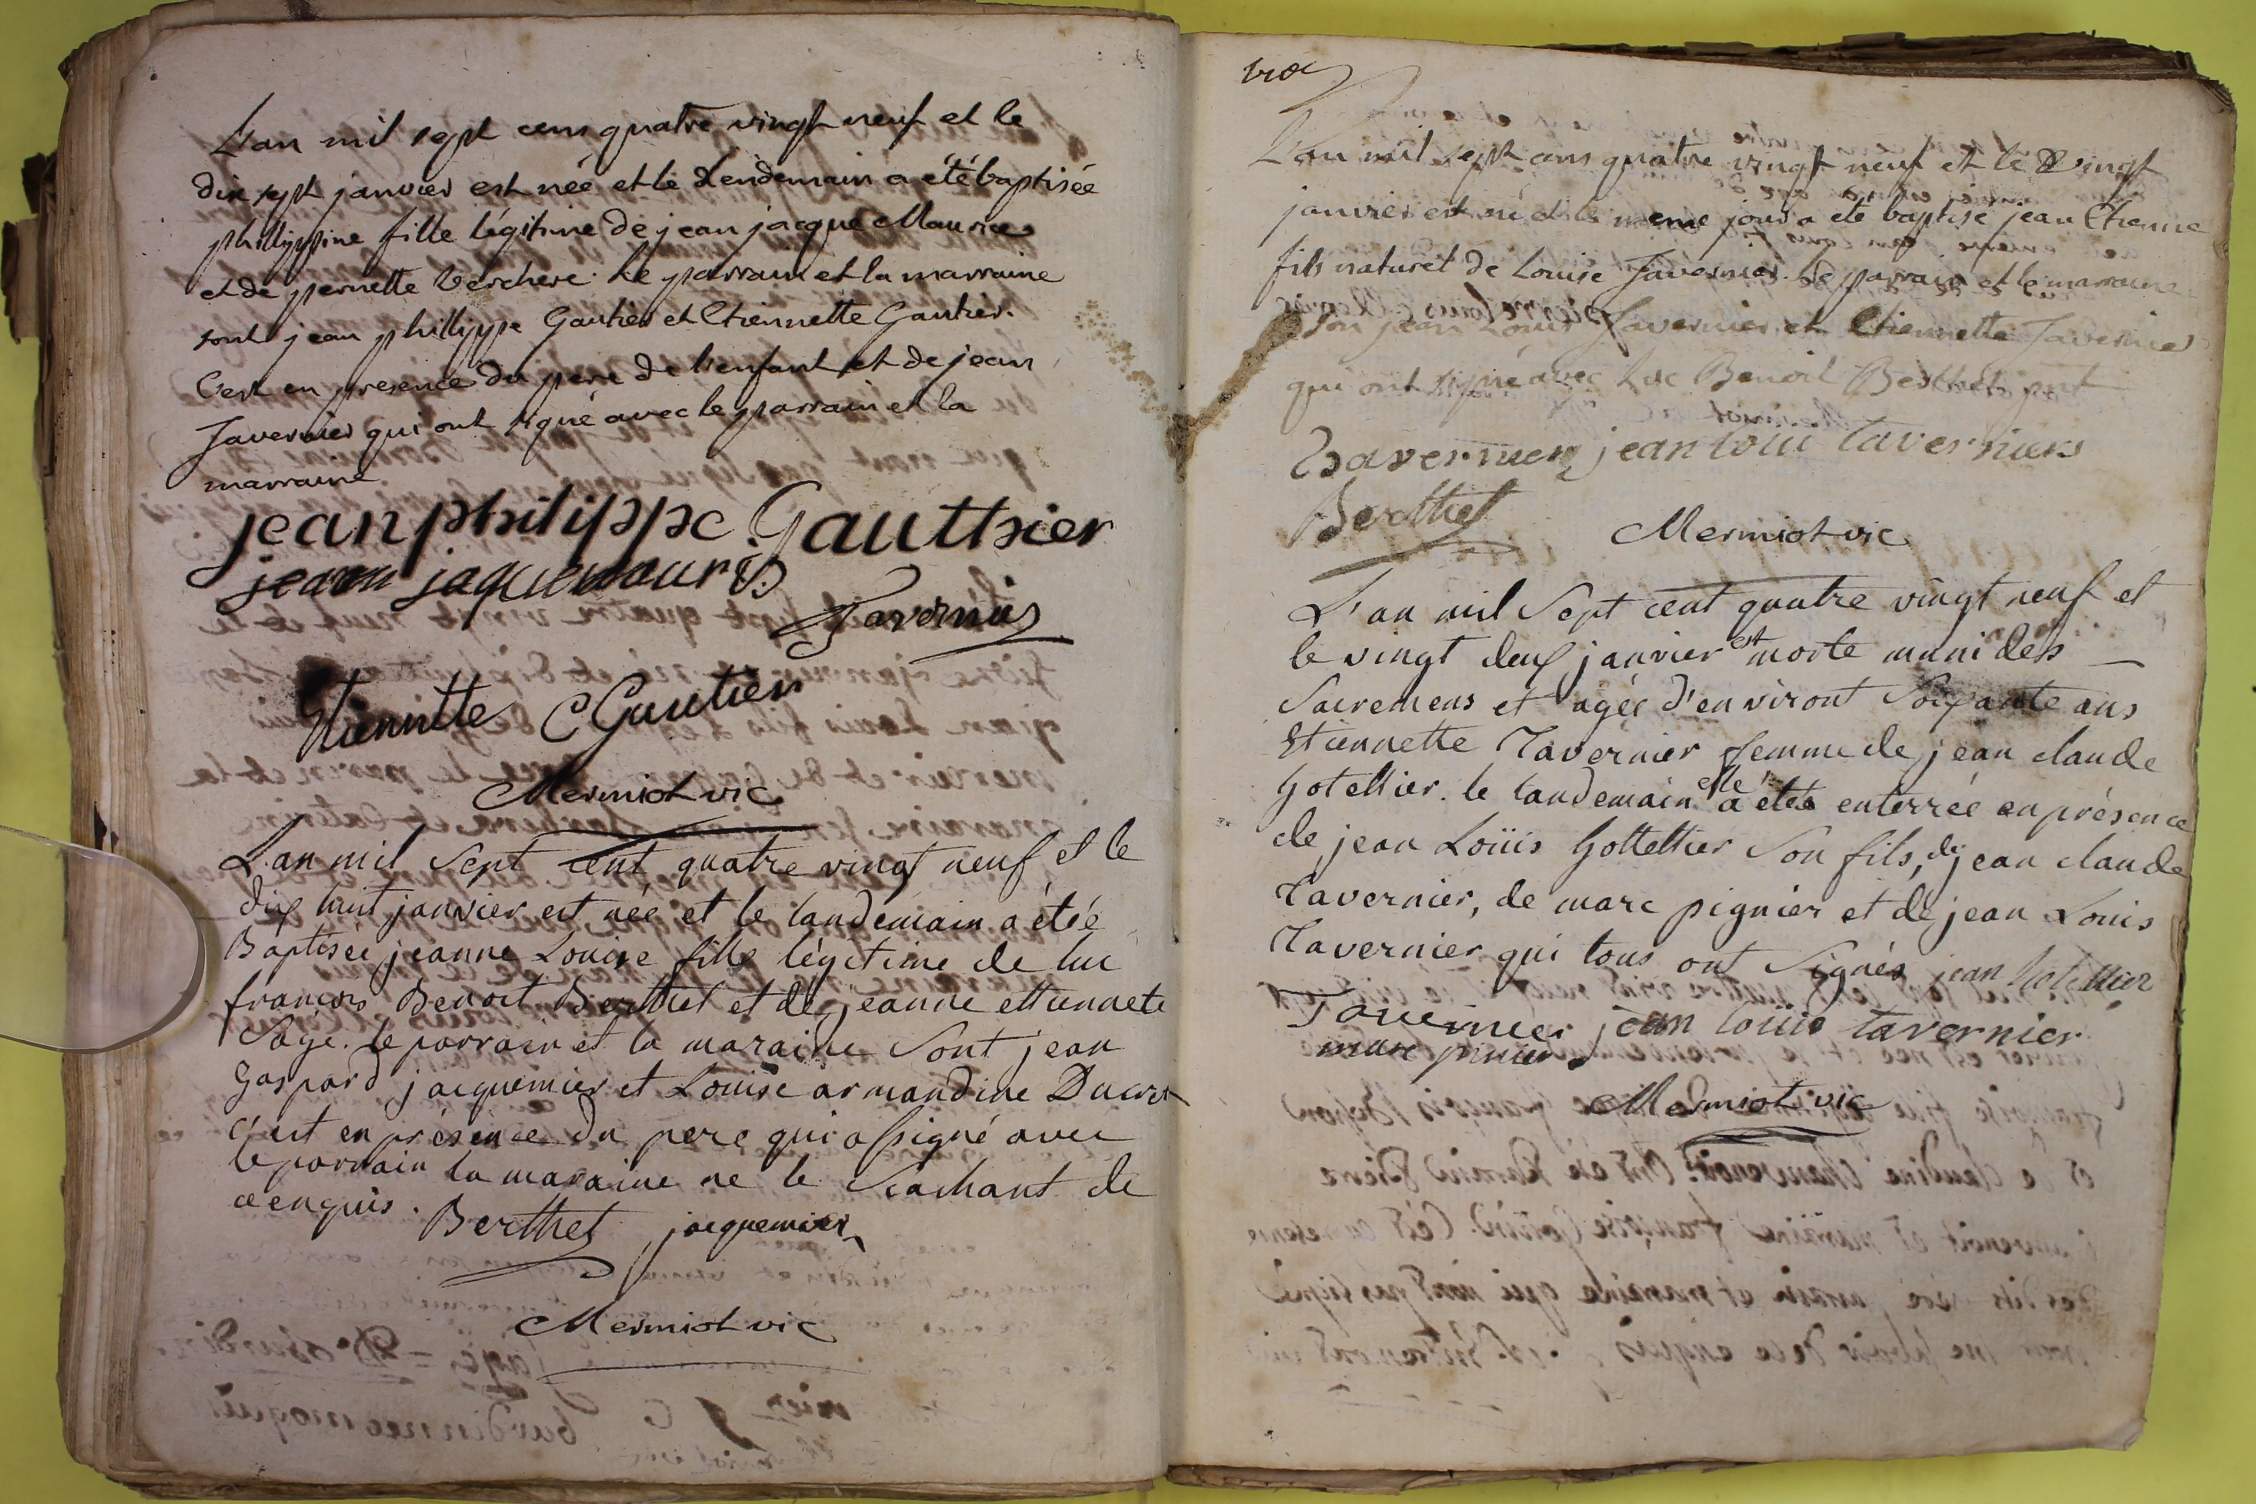 L'an mil sept cens quatre vingt neuf et le
dix sept janvier est née et le Lendemain a été baptisée
phillippine fille légitime de jean jacque Maurice
et de pernette Verchere. Le parrain et la marraine
sont jean phillippe Gautier et Etiennette Gautier.
C'est en presence du pere de l'enfant et de jean
Tavernier qui ont signé avec le parrain et la
marraine
jean philippe Gauthier
jean jaque mauris
Tavernier
Etiennette Gautier
Mermiot vic
L'an mil Sept cent quatre vingt neuf et le
dix huit janvier est née et le landemain a étée
Baptisée jeanne Louise fille légitime de luc
françois Benoit Berthet et de jeanne ettiennete
Sage. le parrain et la maraine Sont jean
Gaspard jacquemier et Louise armandine Ducret
C'est en présence du pere qui a signé avec
le parrain la maraine ne le Scachant de
ce enquis. Berthet jacquemier
Mermiot vic
L'an mil sept cens quatre vingt neuf et le vingt
janvier est né et le meme jour a eté baptisé jean Etienne
fils naturel de Louise Tavernier. Le parrain et la marraine
son jean Louis Tavernier et Etiennette Tavernier
qui ont signé avec Luc Benoit Berthet
Tavernier jean loui taverniers
Berthet
Mermiot vic
L'an mil Sept cent quatre vingt neuf et
le vingt deux janvier est morte muni des
Sacremens et agée d'environt Soixante ans
Etiennette Tavernier femme de jean claude
Gotettier. le landemain elle a étéé enterrée en présence
de jean Loüis Gottettier Son fils, de jean claude
Tavernier, de marc pignier et de jean Louis
Tavernier qui tous ont Signés jean
Tavernier jean loüis tavernier
marc pinier
Mermiot vic